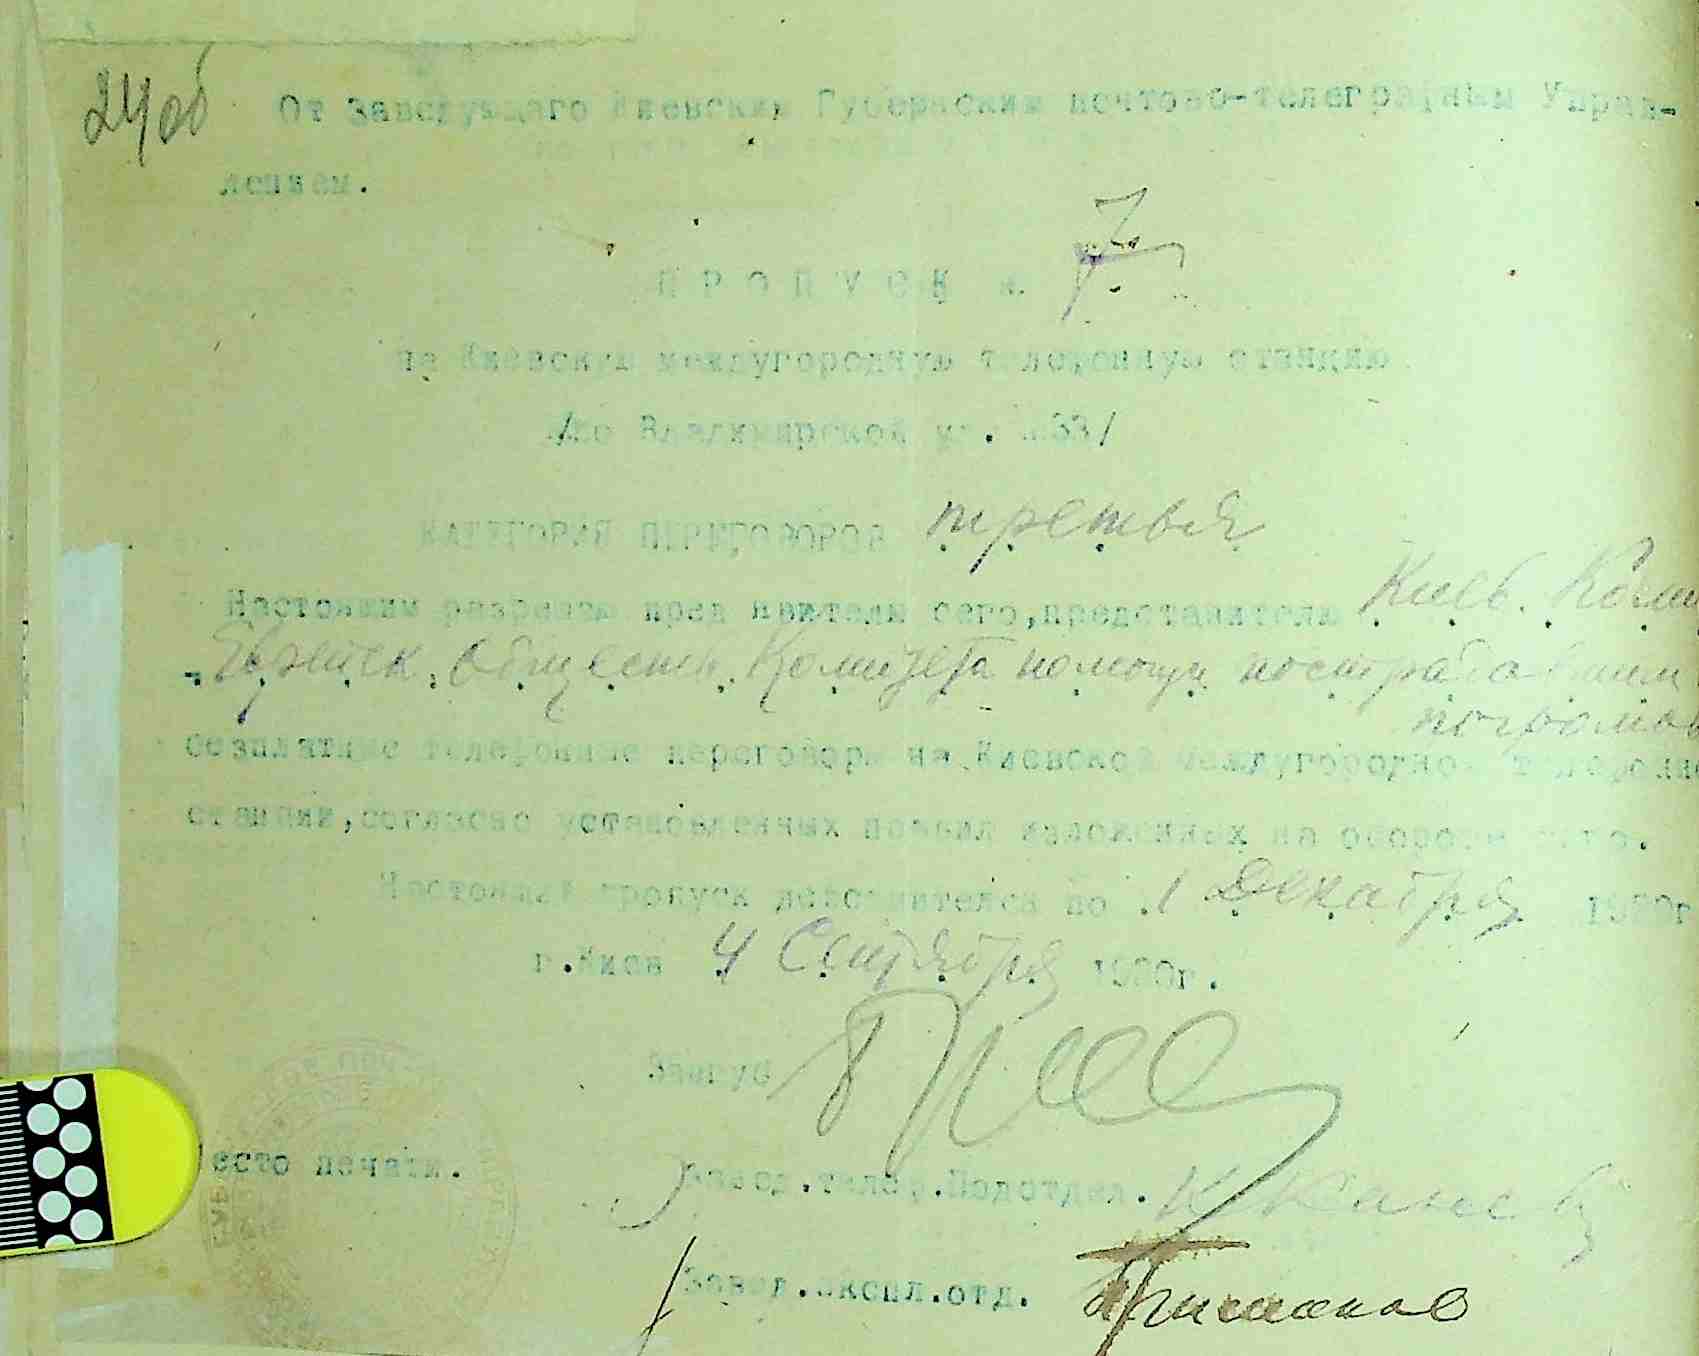 24об
От Заведующаго Киевским Губернским почтово-телеграфным Управ-
лением.
ПРОПУСК №. 7.
на Киевскую междугородную телефонную станцию
/по Владимирской ул. №63/
КАТЕГОРИЯ ПЕРЕГОВОРОВ третья
Настоящим разрешаю пред"явителю сего,представителю Киев. Коми
- Еврейск. Обществ. Комитета помощи пострадавшим
погромов
безплатные телефонные переговоры на Киевской междугородной телефонно
станции,согласно установленных правил изложенных на обороте сего.
Настоящий пропуск действителен до 1 Декабря 1920г
г.Киев 4 Сентября 1920г.
Завгуб
есто печати.
Завед.телеф.Подотдел.
Завед.экспл.отд.